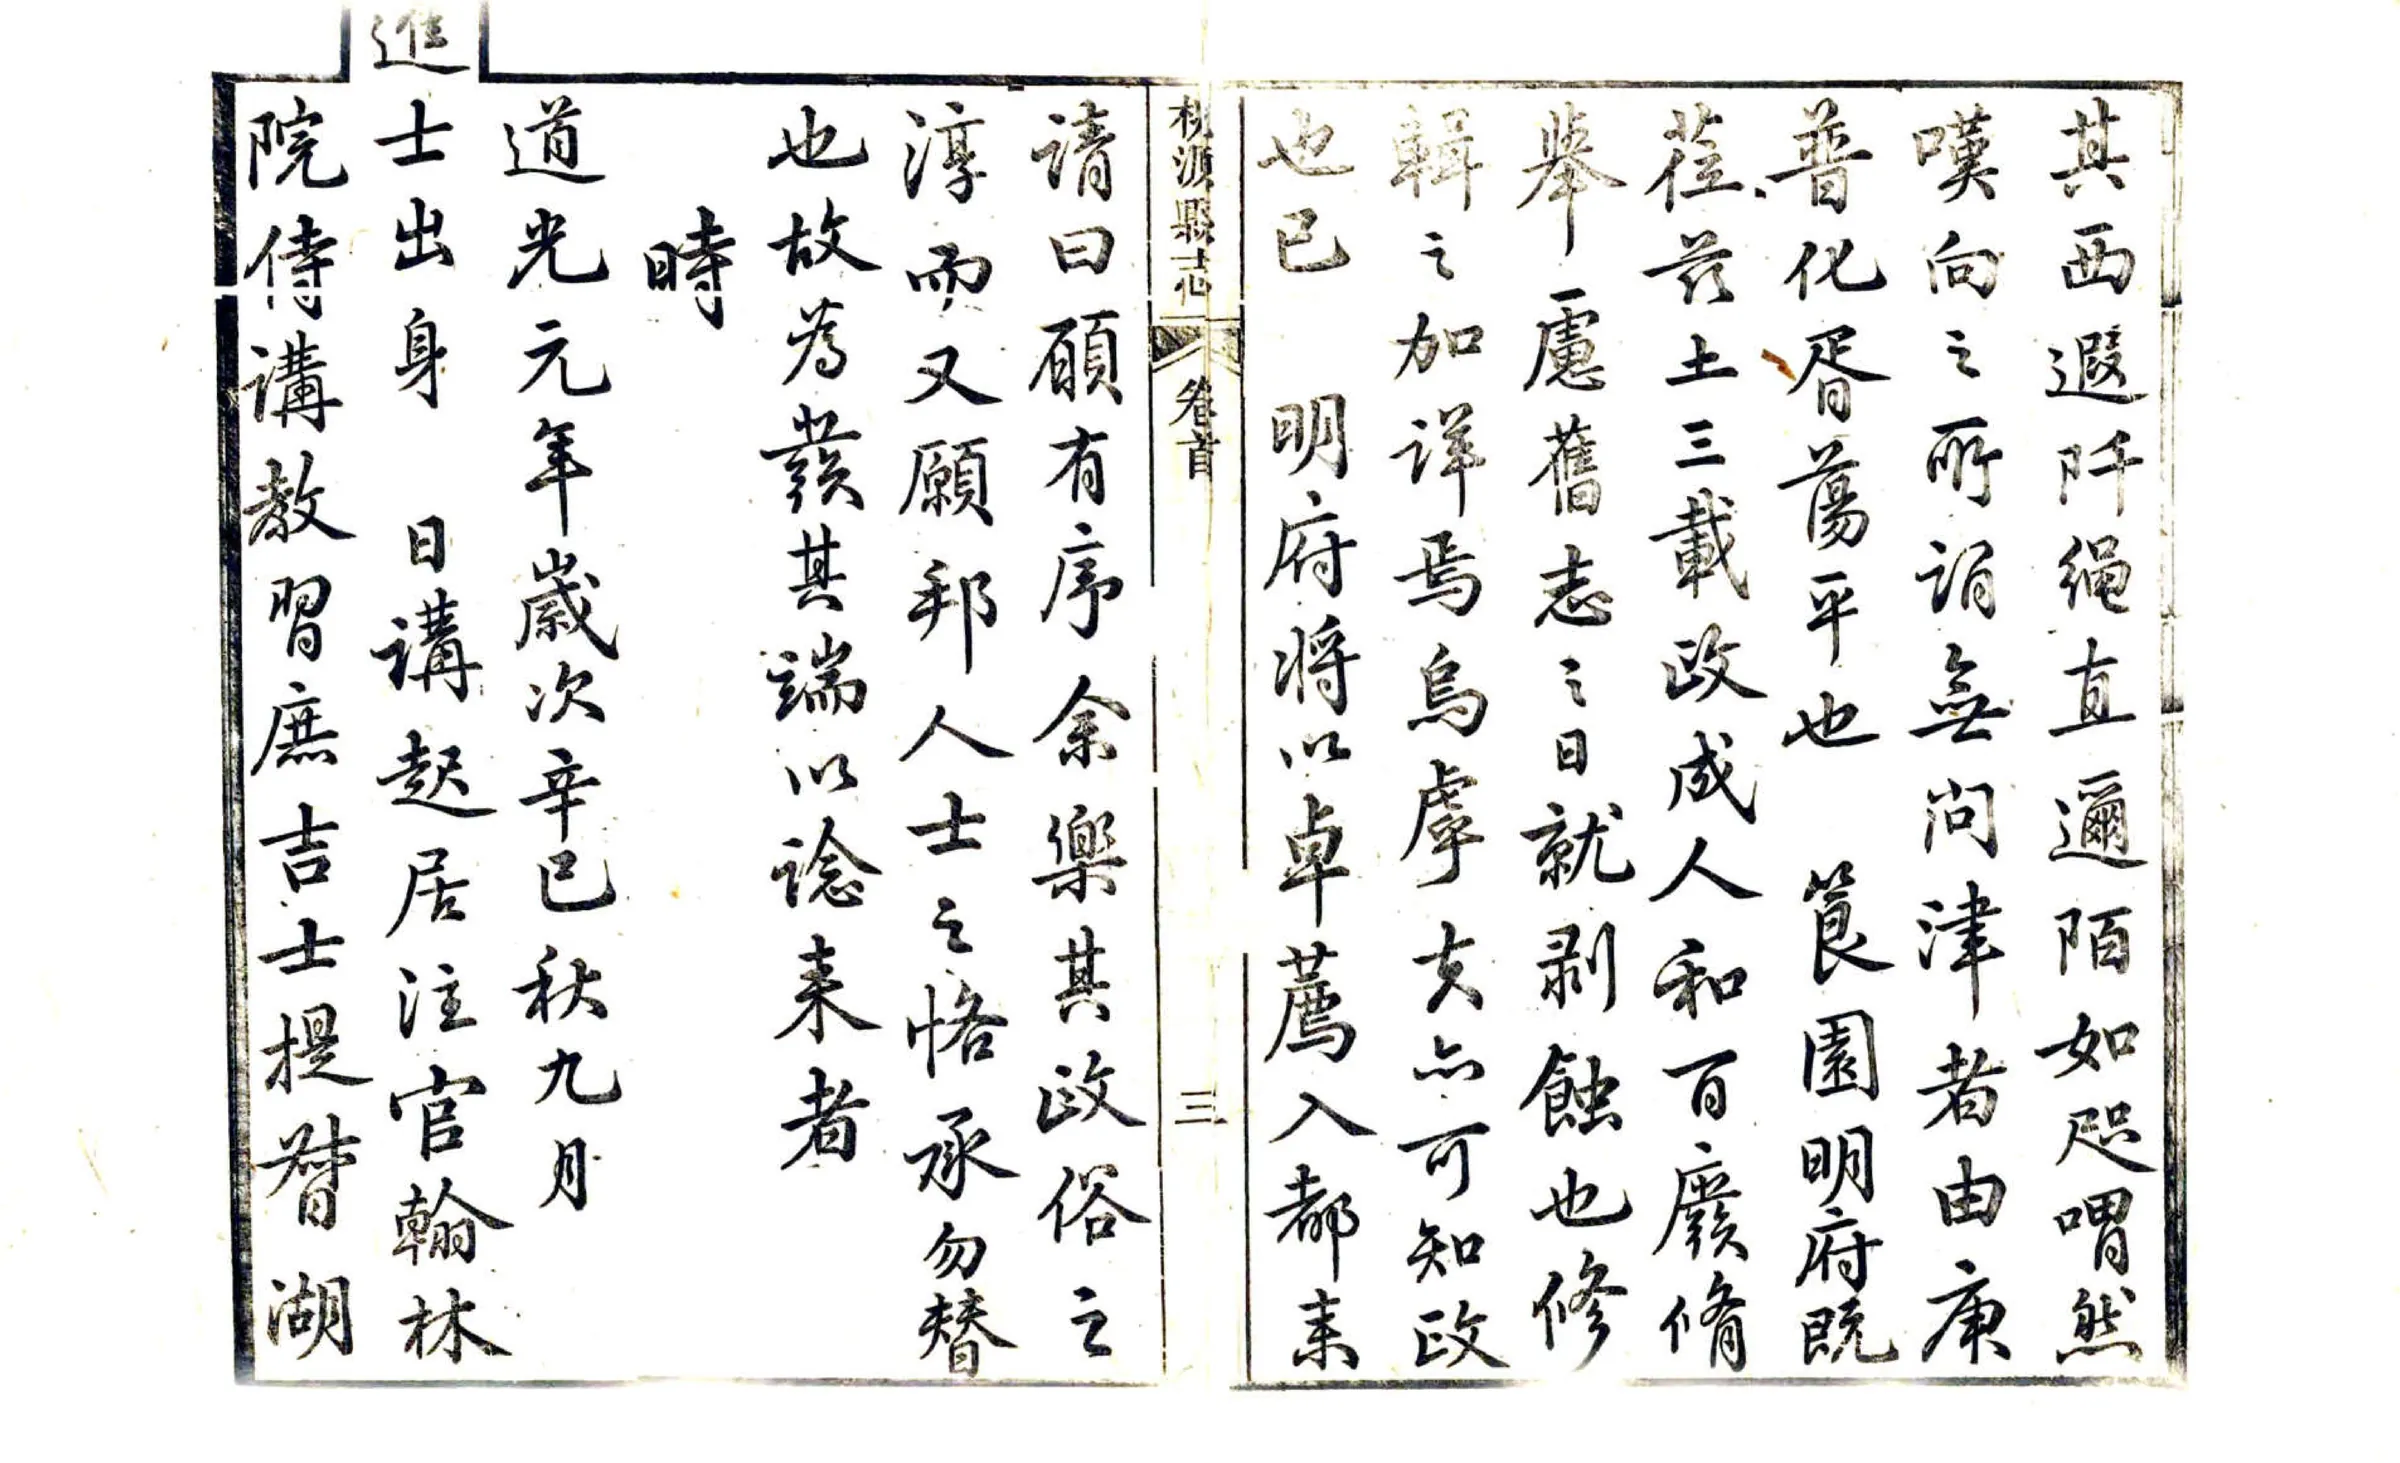 其西遐阡繩直邇陌如咫喟然
嘆向之所謂無問津者由庚
普化胥蕩平也　筤園明府既
莅茲土三載政成人和百廢脩
舉慮舊志之日就剥蝕也修
輯之加詳焉烏虖亥亦可知政
也已　明府將以卓薦入都耒
桃源縣志　卷首　三
请曰願有序余樂其政俗之
淳而又願邦人士之恪承勿替
也故為發其端以諗来者
時
道光元年歲次辛巳秋九月
進士出身　日講起居注官翰林
院侍講教習庶吉士提督湖